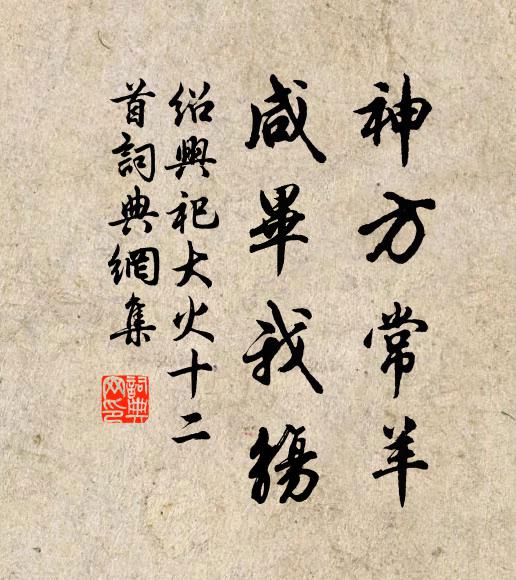 神方常羊
咸畢我觴
紹興祀大火十二
首詞典網集
詞典網印